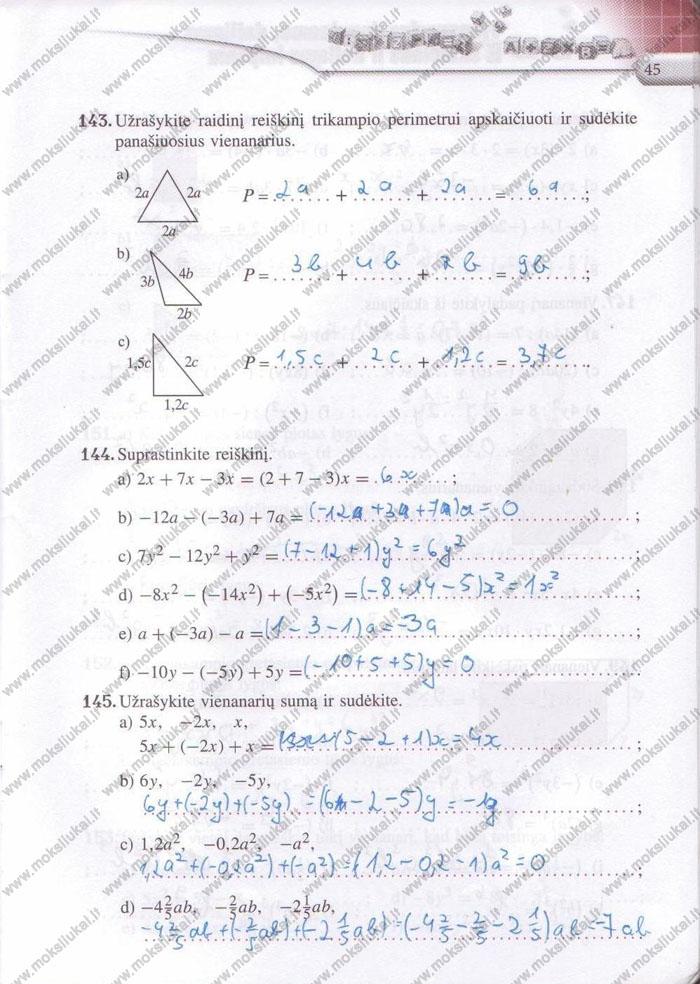 45
143. Užrašykite raidinį reiškinį trikampio perimetrui apskaičiuoti ir sudėkite
panašiuosius vienanarius.
a) 2a 2a 2a P = 2a + 2a + 2a = 6a ;
b) 3b 4b 2b P = 3b + 4b + 2b = 9b ;
c) 1,5c 2c 1,2c P = 1,5c + 2c + 1,2c = 3,7c
144. Suprastinkite reiškinį.
a) 2x + 7x − 3x = (2 + 7 − 3)x = 6x ;
b) −12a − (−3a) + 7a = (−12a + 3a + 7a)a = 0 ;
c) 7y² − 12y² + y² = (7−12+1)y² = 6y² ;
d) −8x² − (−14x²) + (−5x²) = (−8+14−5)x² = 1x² ;
e) a + (−3a) − a = (1−3−1)a = −3a ;
f) −10y − (−5y) + 5y = (−10+5+5)y = 0
145. Užrašykite vienanarių sumą ir sudėkite.
a) 5x, −2x, x,
5x + (−2x) + x = (5−2+1)x = 4x ;
b) 6y, −2y, −5y,
6y+(−2y)+(−5y) = (6−2−5)y = −1y ;
c) 1,2a², −0,2a², −a²,
1,2a²+(−0,2a²)+(−a²) = (1,2−0,2−1)a² = 0 ;
d) −4 2/5 ab, −2/5 ab, −2 1/5 ab,
−4 2/5 ab + (−2/5 ab) + (−2 1/5 ab) = (−4 2/5 − 2/5 − 2 1/5) ab = −7ab
www.moksliukai.lt